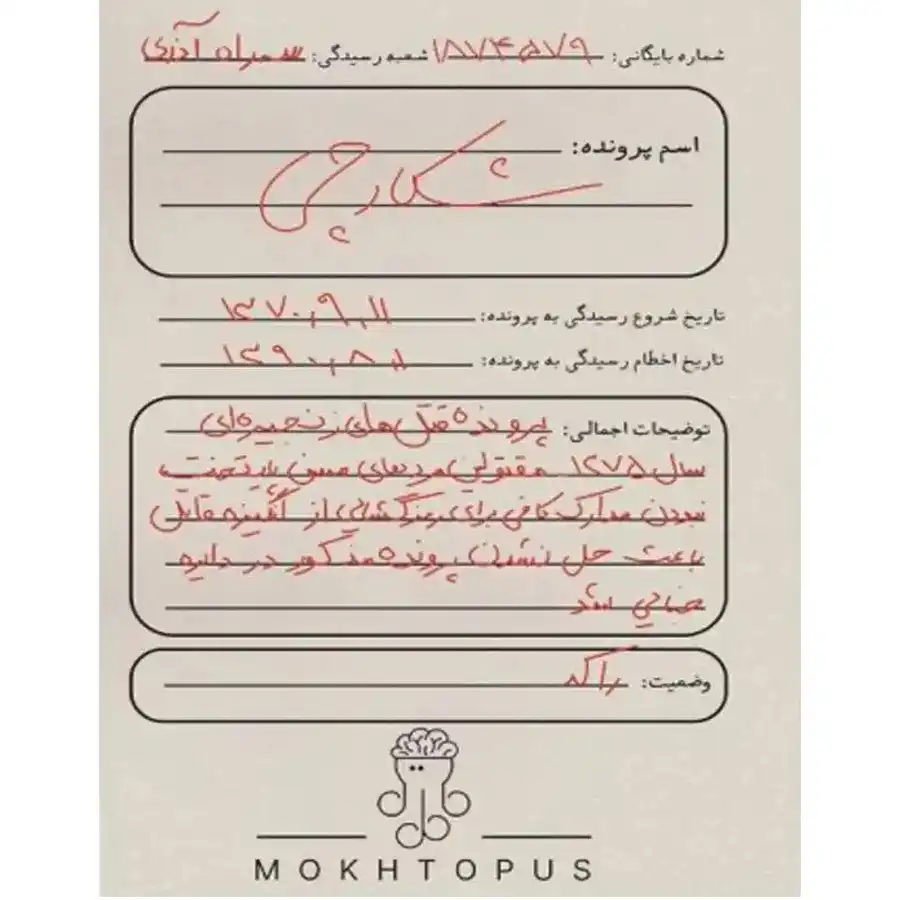 شماره بایگانی: ۱۸۷۴۵۷۹ شعبه رسیدگی:
اسم پرونده:
شکارچی
تاریخ شروع رسیدگی به پرونده: ۱۳۷۰٫۹٫۱۱
تاریخ اخطام رسیدگی به پرونده:
توضیحات اجمالی: پرونده قتل های زنجیره‌ای
سال ۱۳۷۵ مقتولین مردهای مسن پایتخت
نبودن مدارک کافی برای از انگیزه قاتل
باعث حل نشدن پرونده مذکور در دایره
جنایی شد
وضعیت: راکد
MOKHTOPUS